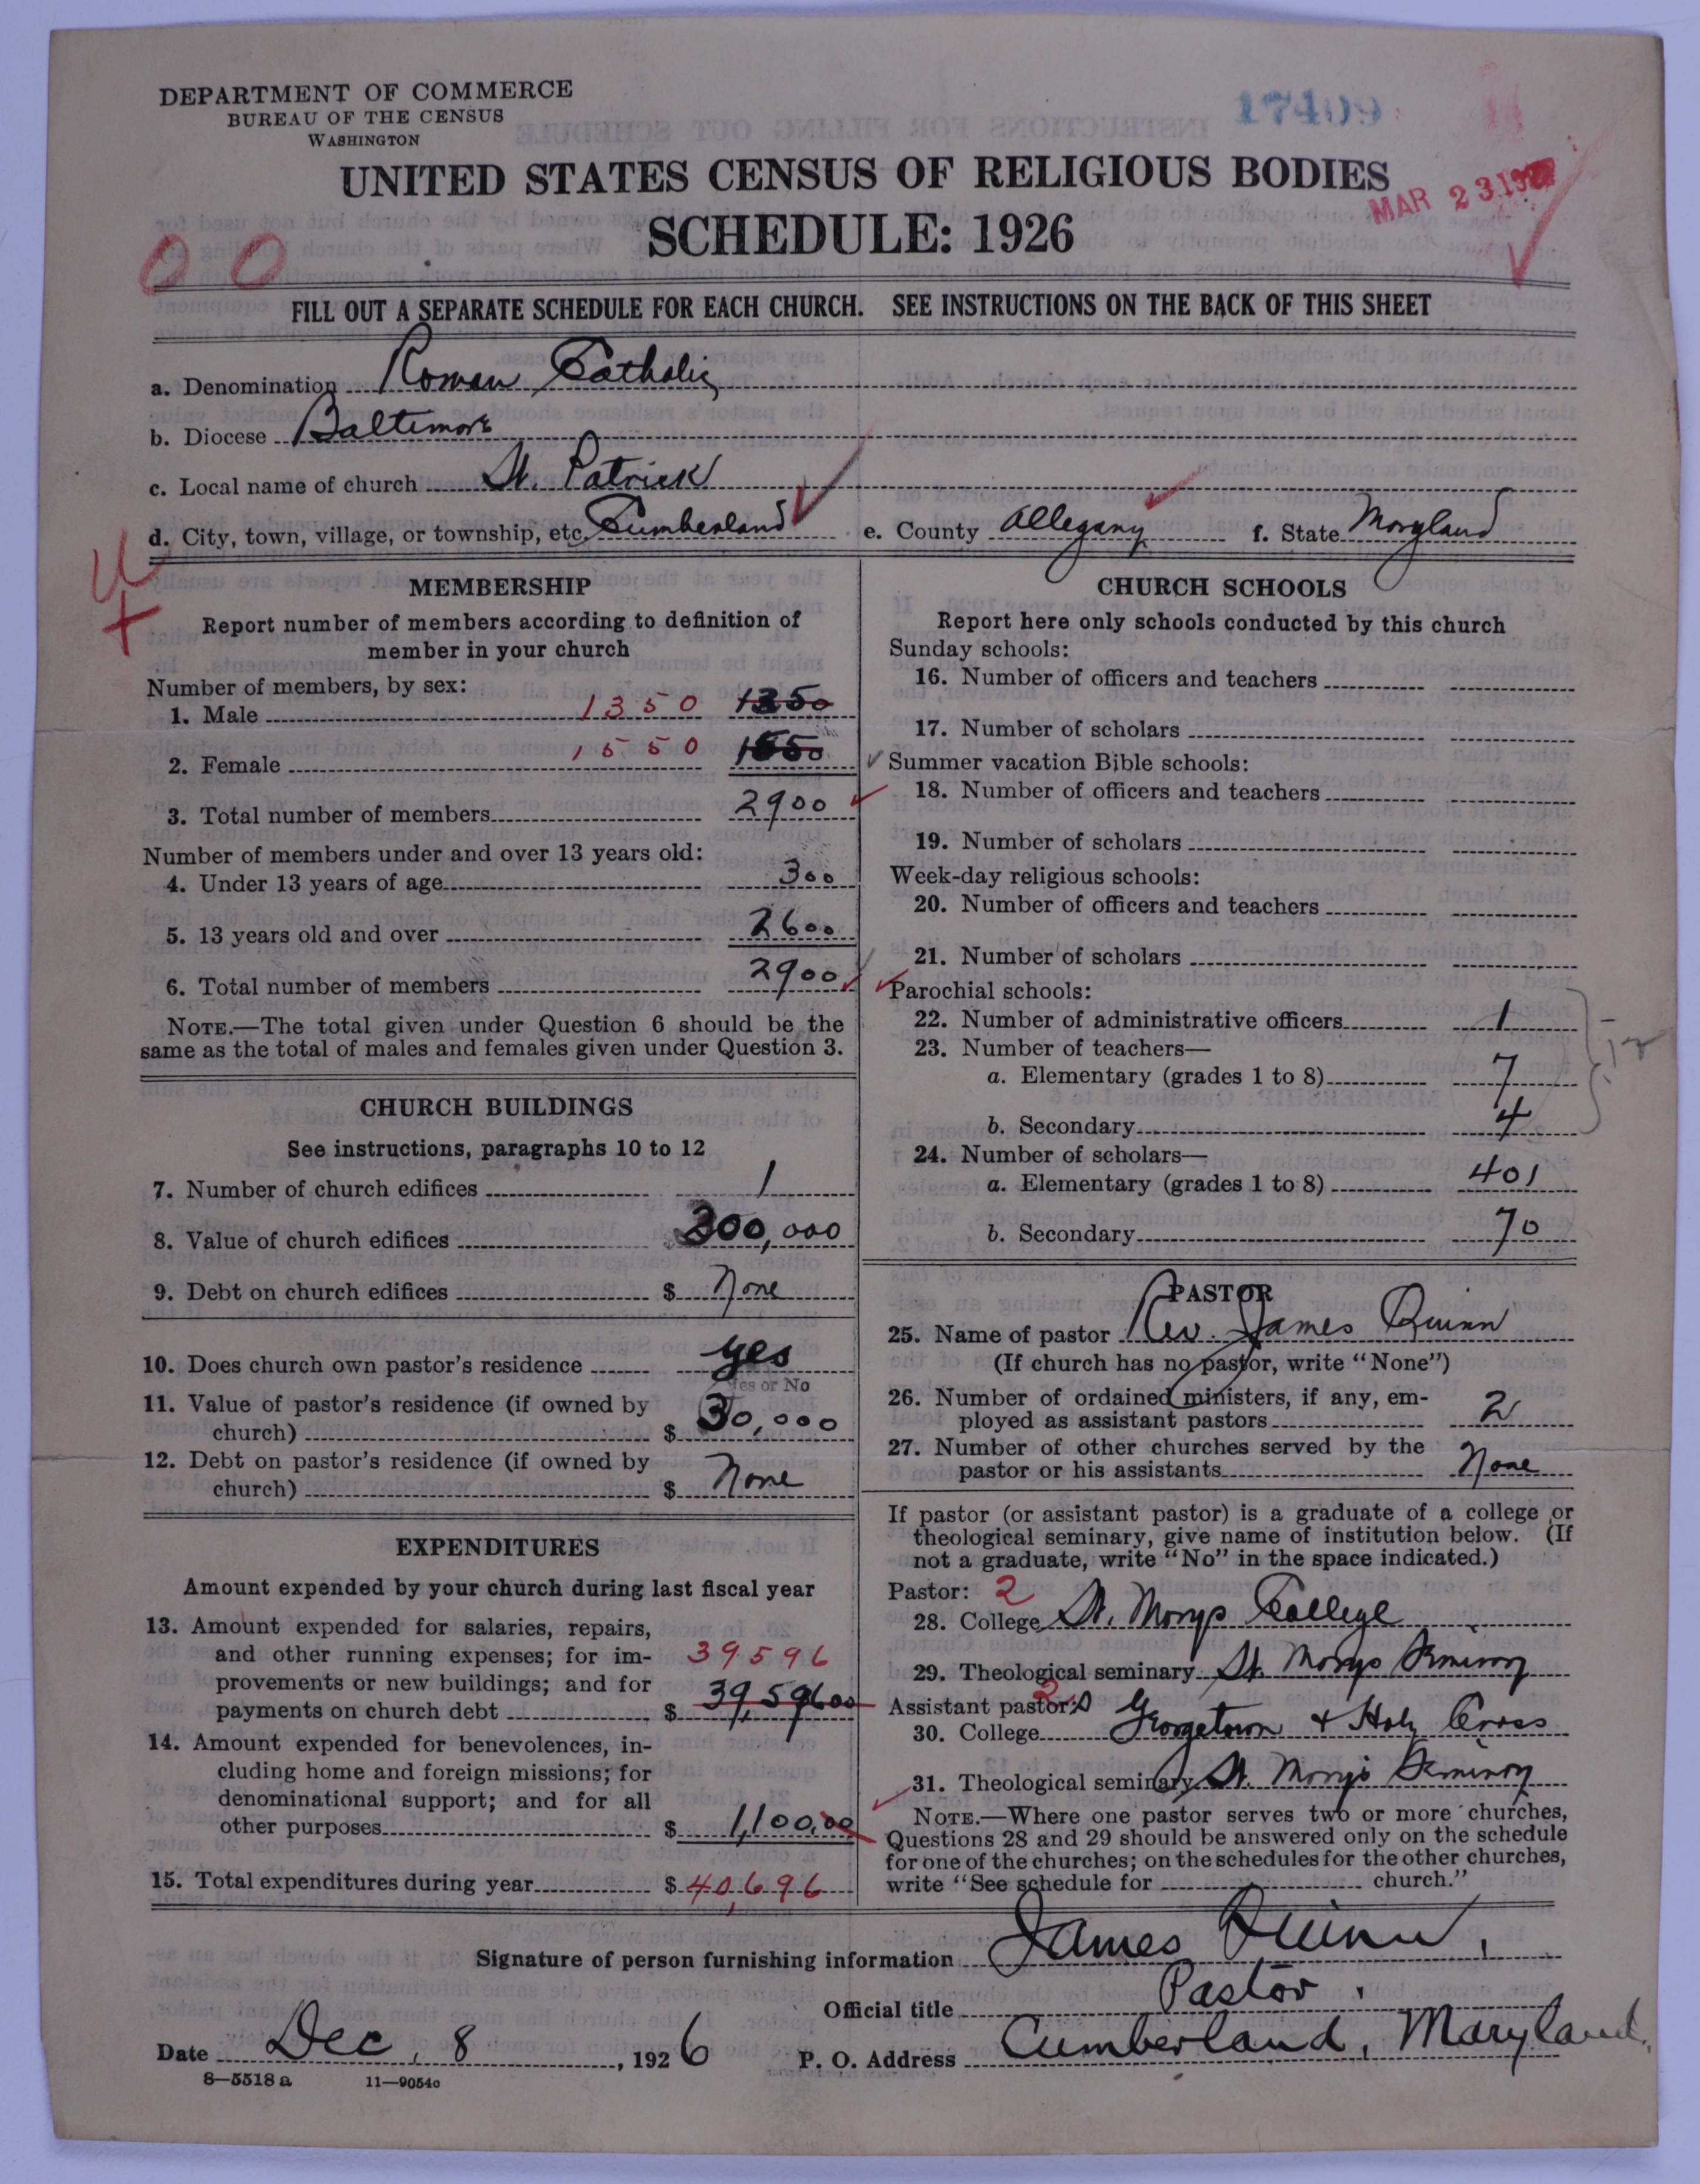 DEPARTMENT OF COMMERCE
BUREAU OF THE CENSUS
WASHINGTON
17409
UNITED STATES CENSUS OF RELIGIOUS BODIES
MAR 23 1927
SCHEDULE: 1926
0 0
FILL OUT A SEPARATE SCHEDULE FOR EACH CHURCH. SEE INSTRUCTIONS ON THE BACK OF THIS SHEET
a. Denomination Roman Catholic
b. Diocese Baltimore
c. Local name of church St. Patrick
d. City, town, village, or township, etc. Cumberland e. County Allegany f. State Maryland
MEMBERSHIP
Report number of members according to definition of
member in your church
Number of members, by sex:
1. Male 1350 1350
2. Female 1550 1550
3. Total number of members 2900
Number of members under and over 13 years old:
4. Under 13 years of age 300
5. 13 years old and over 2600
6. Total number of members 2900
NOTE.—The total given under Question 6 should be the
same as the total of males and females given under Question 3.
CHURCH BUILDINGS
See instructions, paragraphs 10 to 12
7. Number of church edifices 1
8. Value of church edifices 200,000
9. Debt on church edifices $ None
10. Does church own pastor's residence yes
Yes or No
11. Value of pastor's residence (if owned by
church) $ 30,000
12. Debt on pastor's residence (if owned by
church) $ None
EXPENDITURES
Amount expended by your church during last fiscal year
13. Amount expended for salaries, repairs,
and other running expenses; for im- 39596
provements or new buildings; and for
payments on church debt $ 39,596 00
14. Amount expended for benevolences, in-
cluding home and foreign missions; for
denominational support; and for all
other purposes $ 1,100,00
15. Total expenditures during year $ 40,696
CHURCH SCHOOLS
Report here only schools conducted by this church
Sunday schools:
16. Number of officers and teachers
17. Number of scholars
Summer vacation Bible schools:
18. Number of officers and teachers
19. Number of scholars
Week-day religious schools:
20. Number of officers and teachers
21. Number of scholars
Parochial schools:
22. Number of administrative officers 1
23. Number of teachers—
a. Elementary (grades 1 to 8) 7
b. Secondary 4
24. Number of scholars—
a. Elementary (grades 1 to 8) 401
b. Secondary 70
PASTOR
25. Name of pastor Rev. James Quinn
(If church has no pastor, write "None")
26. Number of ordained ministers, if any, em-
ployed as assistant pastors 2
27. Number of other churches served by the
pastor or his assistants None
If pastor (or assistant pastor) is a graduate of a college or
theological seminary, give name of institution below. (If
not a graduate, write "No" in the space indicated.)
Pastor: 2
28. College St. Marys College
29. Theological seminary St. Marys Seminary
Assistant pastor: s 2
30. College Georgetown & Holy Cross
31. Theological seminary St. Marys Seminary
NOTE.—Where one pastor serves two or more churches,
Questions 28 and 29 should be answered only on the schedule
for one of the churches; on the schedules for the other churches,
write "See schedule for church."
Signature of person furnishing information James Quinn,
Official title Pastor.
Date Dec. 8, 1926 P. O. Address Cumberland, Maryland.
8—5518 a 11—9054c